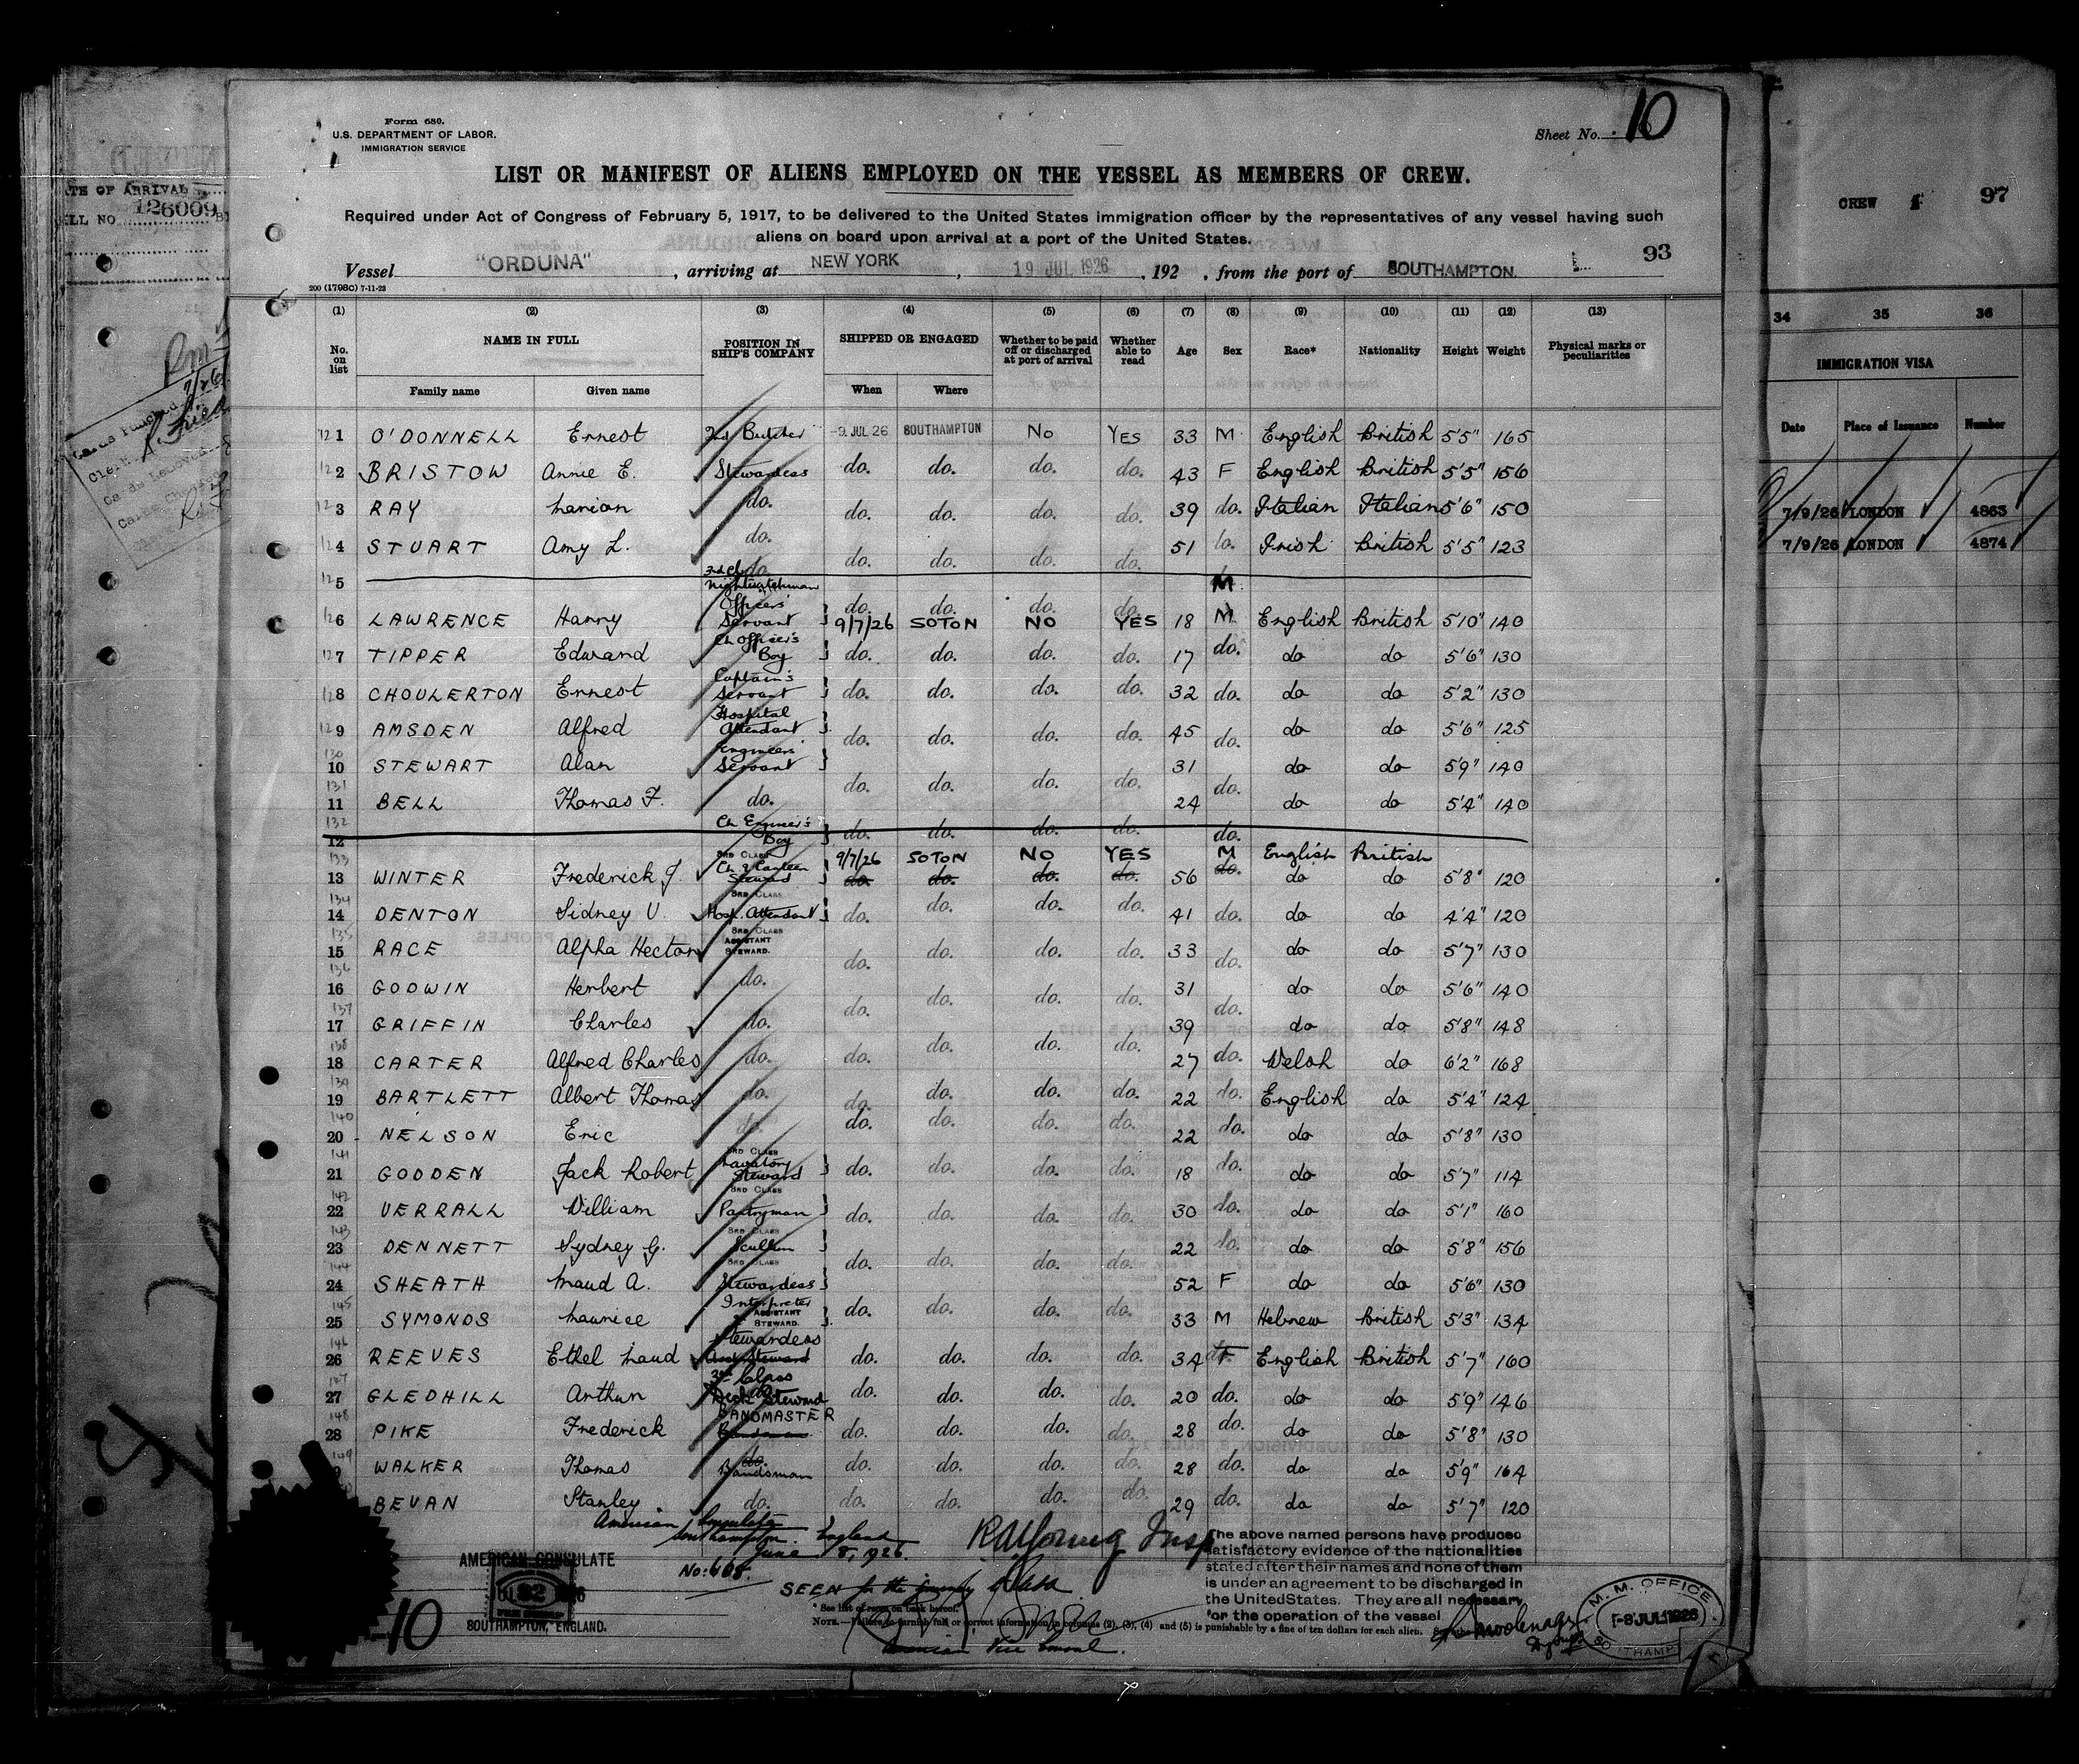 Form 680.
U.S. DEPARTMENT OF LABOR.
IMMIGRATION SERVICE
Sheet No. 10
LIST OR MANIFEST OF ALIENS EMPLOYED ON THE VESSEL AS MEMBERS OF CREW.
Required under Act of Congress of February 5, 1917, to be delivered to the United States immigration officer by the representatives of any vessel having such
aliens on board upon arrival at a port of the United States.
93
Vessel "ORDUNA", arriving at NEW YORK, 19 JUL 1926, 192 , from the port of SOUTHAMPTON.
200 (1798C) 7-11-23
(1) (2) (3) (4) (5) (6) (7) (8) (9) (10) (11) (12) (13)
No. on list NAME IN FULL POSITION IN SHIP'S COMPANY SHIPPED OR ENGAGED Whether to be paid off or discharged at port of arrival Whether able to read Age Sex Race* Nationality Height Weight Physical marks or peculiarities
Family name Given name When Where
1 O'DONNELL Ernest 2nd Butcher -9 JUL 26 SOUTHAMPTON No YES 33 M English British 5'5" 165
2 BRISTOW Annie E. Stewardess do. do. do. do. 43 F English British 5'5" 156
3 RAY Marion do. do. do. do. do. 39 do. Italian Italian 5'6" 150
4 STUART Amy L. do. do. do. do. do. 51 do. Irish British 5'5" 123
5 3rd Cl do. Nightwatchman do. do. do. do. M
6 LAWRENCE Harry Officers' Servant 9/7/26 SOTON NO YES 18 M English British 5'10" 140
7 TIPPER Edward Ch Officer's Boy do. do. do. do. 17 do. do do 5'6" 130
8 CHOULERTON Ernest Captain's Servant do. do. do. do. 32 do. do do 5'2" 130
9 AMSDEN Alfred Hospital Attendant do. do. do. do. 45 do. do do 5'6" 125
10 STEWART Alan Engineers' Servant do. do. do. do. 31 do. do do 5'9" 140
11 BELL Thomas F. do. 24 do do 5'4" 140
12 Ch Engineer's Boy do. do. do. do. do.
9/7/26 SOTON NO YES M English British
13 WINTER Frederick J. 3RD CLASS Ch & Canteen Steward do. do. do. do. 56 do. do do 5'8" 120
14 DENTON Sidney V. 3RD CLASS Hosp. Attendant do. do. do. do. 41 do. do do 4'4" 120
15 RACE Alpha Hector 3RD CLASS ASSISTANT STEWARD. do. do. do. do. 33 do. do do 5'7" 130
16 GODWIN Herbert do. do. do. do. do. 31 do. do do 5'6" 140
17 GRIFFIN Charles do. 39 do do 5'8" 148
18 CARTER Alfred Charles do. do. do. do. do. 27 do. Welsh do 6'2" 168
19 BARTLETT Albert Thomas do. do. do. do. do. 22 do. English do 5'4" 124
20 NELSON Eric do. do. do. do. do. 22 do. do do 5'8" 130
21 GODDEN Jack Robert 3RD CLASS Lavatory Steward do. do. do. do. 18 do. do do 5'7" 114
22 VERRALL William 3RD CLASS Pantryman do. do. do. do. 30 do. do do 5'1" 160
23 DENNETT Sydney G. 3RD CLASS Scullion do. do. do. do. 22 do. do do 5'8" 156
24 SHEATH Maud A. 3RD CLASS Stewardess 52 F do do 5'6" 130
25 SYMONDS Maurice Interpreter & ASSISTANT STEWARD. do. do. do. do. 33 M Hebrew British 5'3" 134
26 REEVES Ethel Maud Stewardess Asst Steward do. do. do. do. 34 F English British 5'7" 160
27 GLEDHILL Arthur 3rd Class Deck Steward do. do. do. do. 20 do. do do 5'9" 146
28 PIKE Frederick BANDMASTER Bandsman do. do. do. do. 28 do. do do 5'8" 130
WALKER Thomas do. Bandsman do. do. do. do. 28 do. do do 5'9" 164
BEVAN Stanley do. do. do. do. do. 29 do. do do 5'7" 120
American Consulate
Southampton, England
June 8, 1926.
No: 608.
AMERICAN CONSULATE
SOUTHAMPTON, ENGLAND.
SEEN for the journey
American Vice Consul.
R A Young Insp
The above named persons have produced
satisfactory evidence of the nationalities
stated after their names and none of them
is under an agreement to be discharged in
the United States. They are all necessary
for the operation of the vessel
* See list of races on back hereof.
NOTE.—Failure to furnish full or correct information in columns (2), (3), (4) and (5) is punishable by a fine of ten dollars for each alien.
M. M. OFFICE
-8 JUL 1926
SOUTHAMPTON
10
DATE OF ARRIVAL
126009
CREW 97
34 35 36
IMMIGRATION VISA
Date Place of Issuance Number
7/9/26 LONDON 4863
7/9/26 LONDON 4874